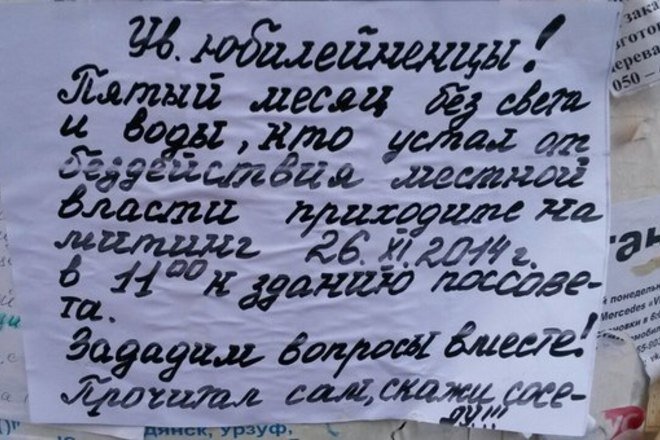 Ув. юбилейненцы!
Пятый месяц без света
и воды, кто устал от
бездействия местной
власти приходите на
митинг 26.XI.2014г.
в 11⁰⁰ к зданию поссове-
та.
Зададим вопросы вместе!
Прочитал сам, скажи сосе-
ду!!!
зака
згото
перева
050 –
тан
й понедель
Mercedes «V
дянск, урзуф,